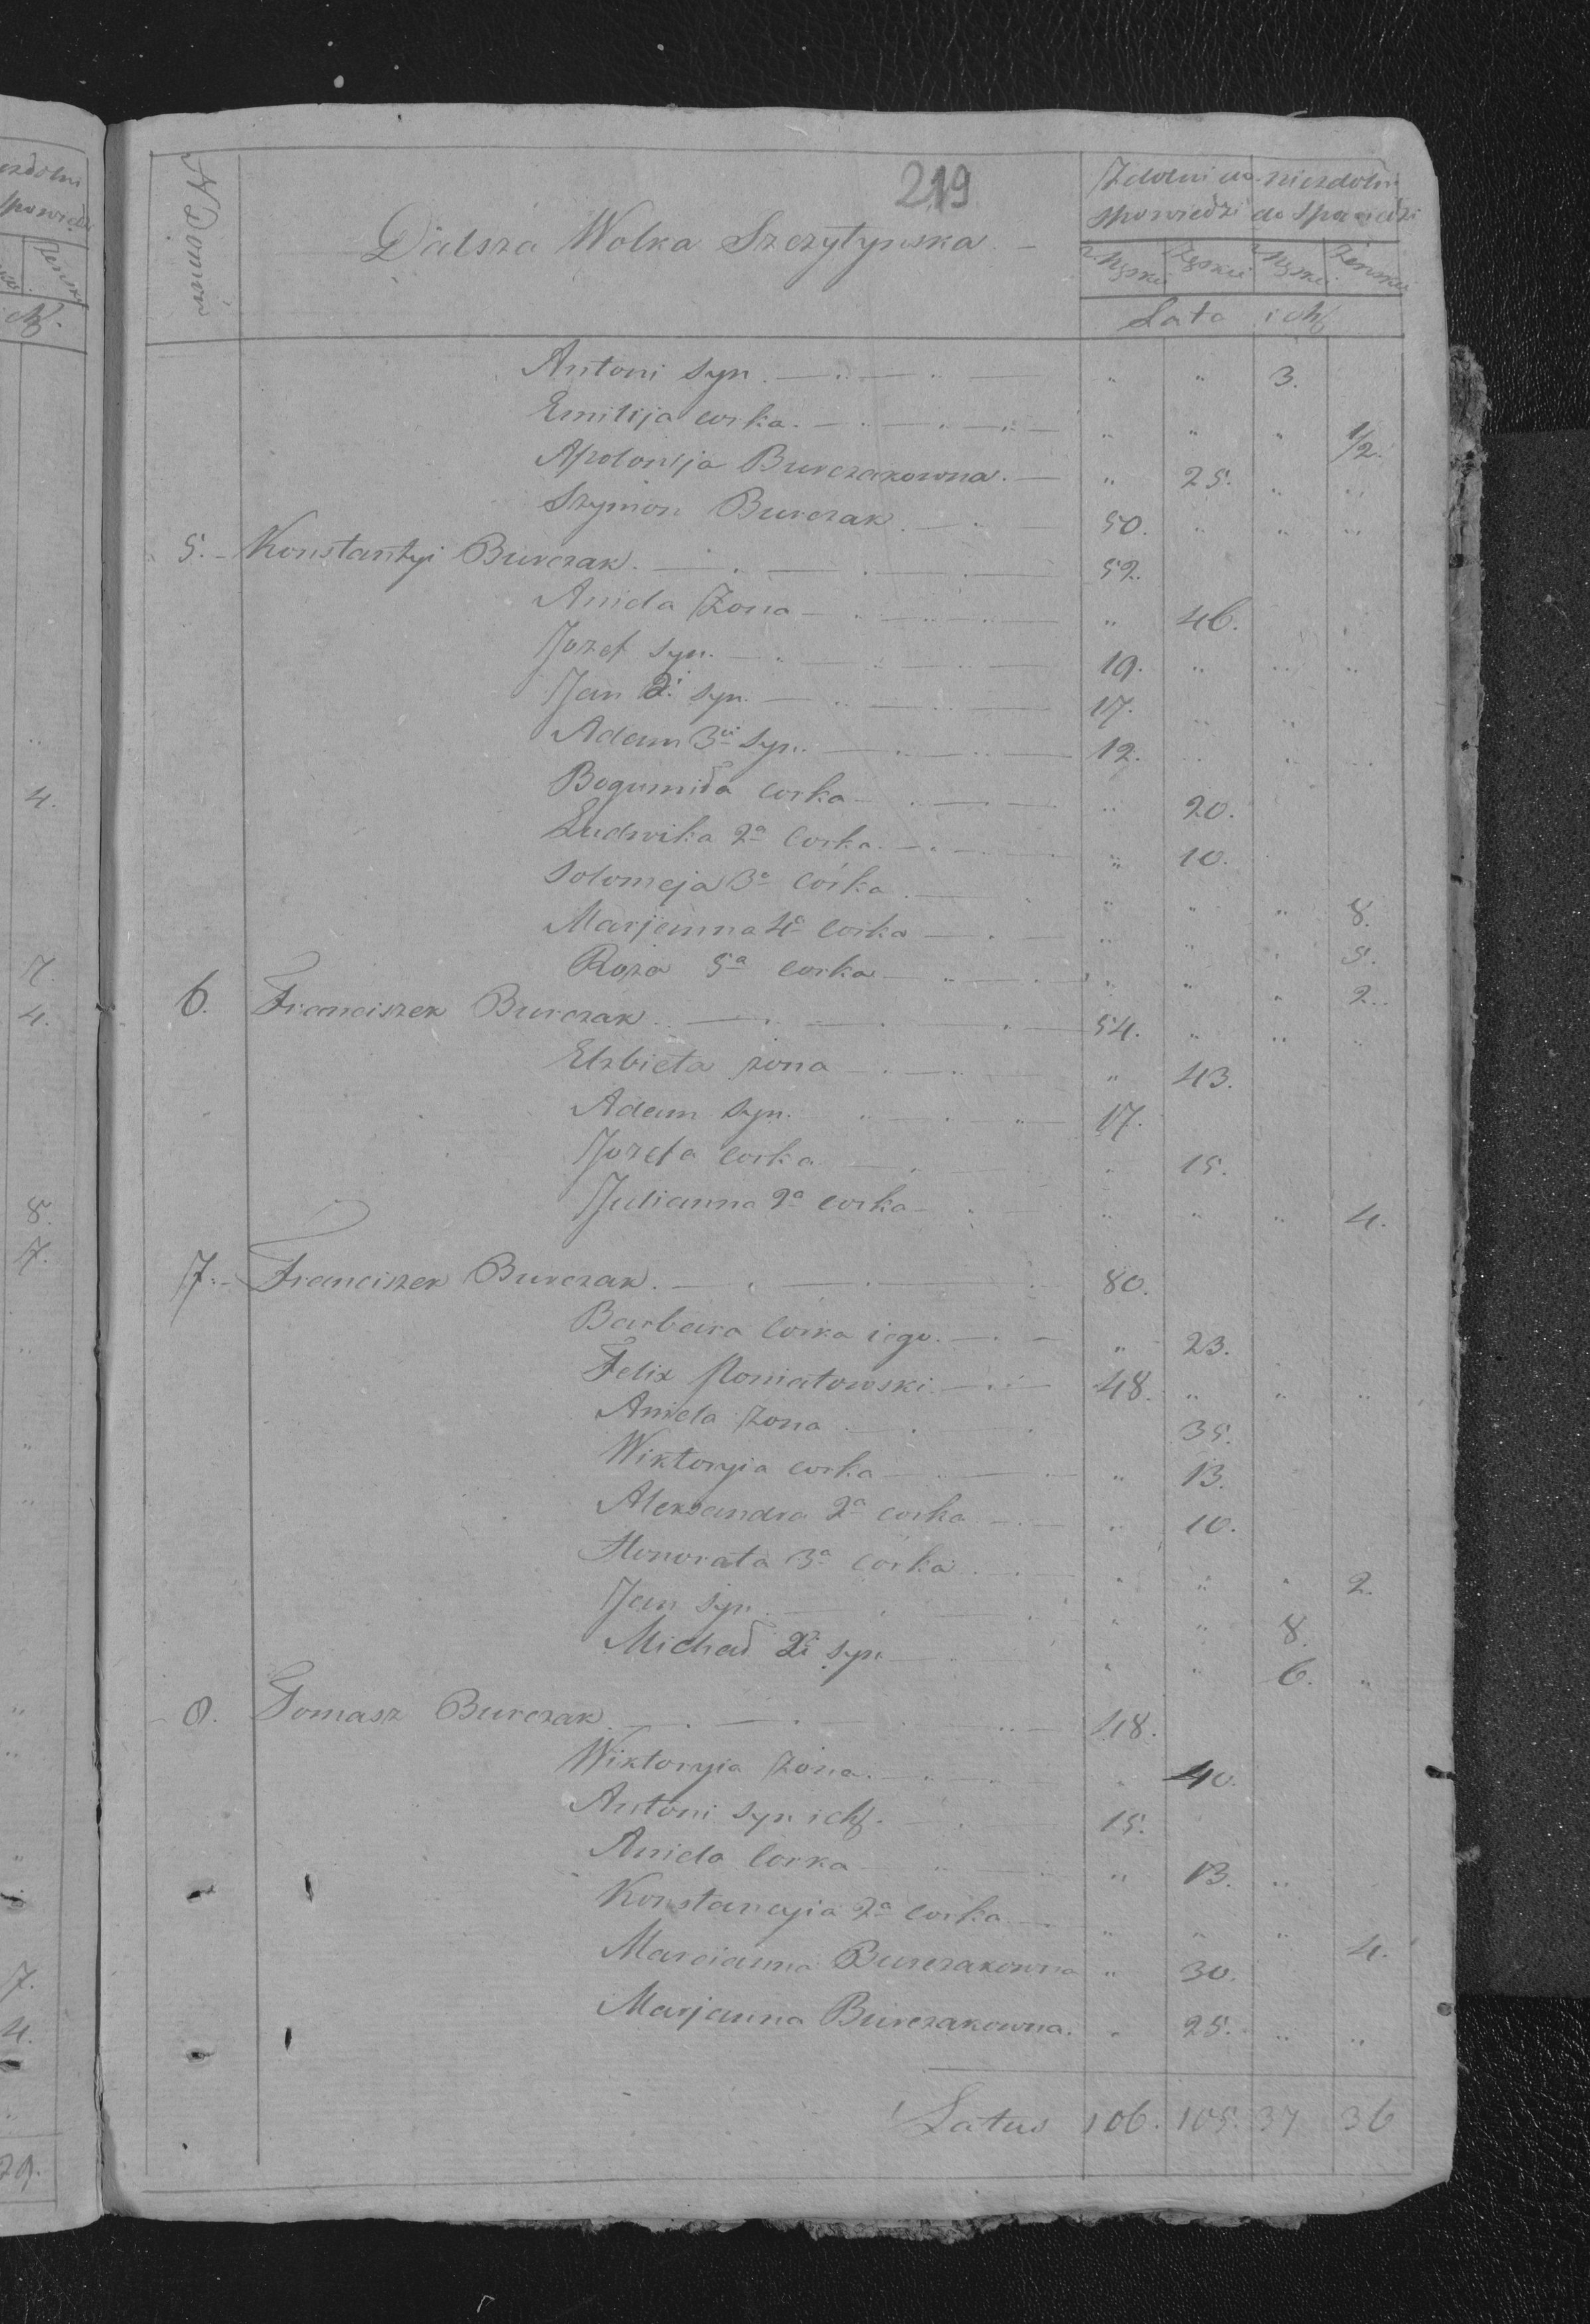 219
N Domu
Dalsza Wolka Szczytynska
Zdolni do spowiedzi niezdolni do Spowiedzi
Męska Żęska Męska Żenska
Lata ich
Antoni syn 3.
Emilija corka 1/2.
Apolonija Burczakowna 25.
Szymon Burczak 50.
5. Konstantyi Burczak 52.
Aniela Żona 46.
Jozef syn 19.
Jan 2i syn 17.
Adam 3ci syn 12.
Bogumiła corka 20.
Ludwika 2a Corka 10.
Solomeja 3a Córka 8.
Marjanna 4a Corka 5.
Roza 5a corka 2.
6. Franciszek Burczak 54.
Elzbieta żona 43.
Adam Syn 17.
Jozefa corka 15.
Julianna 2a corka 4.
7. Franciszek Burczak 80.
Barbara Corka iego 23.
Felix Poniatowski 48.
Aniela Żona 35.
Wiktoryia corka 13.
Aleksandra 2a corka 10.
Honorata 3a córka 2.
Jan Syn 8.
Michał 2i syn 6.
8. Tomasz Burczak 48.
Wiktoryia Żona 40.
Antoni syn ich 15.
Aniela Corka 13.
Konstancyia 2a corka 4.
Marcianna Burczakowna 30.
Marjanna Burczakowna 25.
Latus 106. 105. 37 36